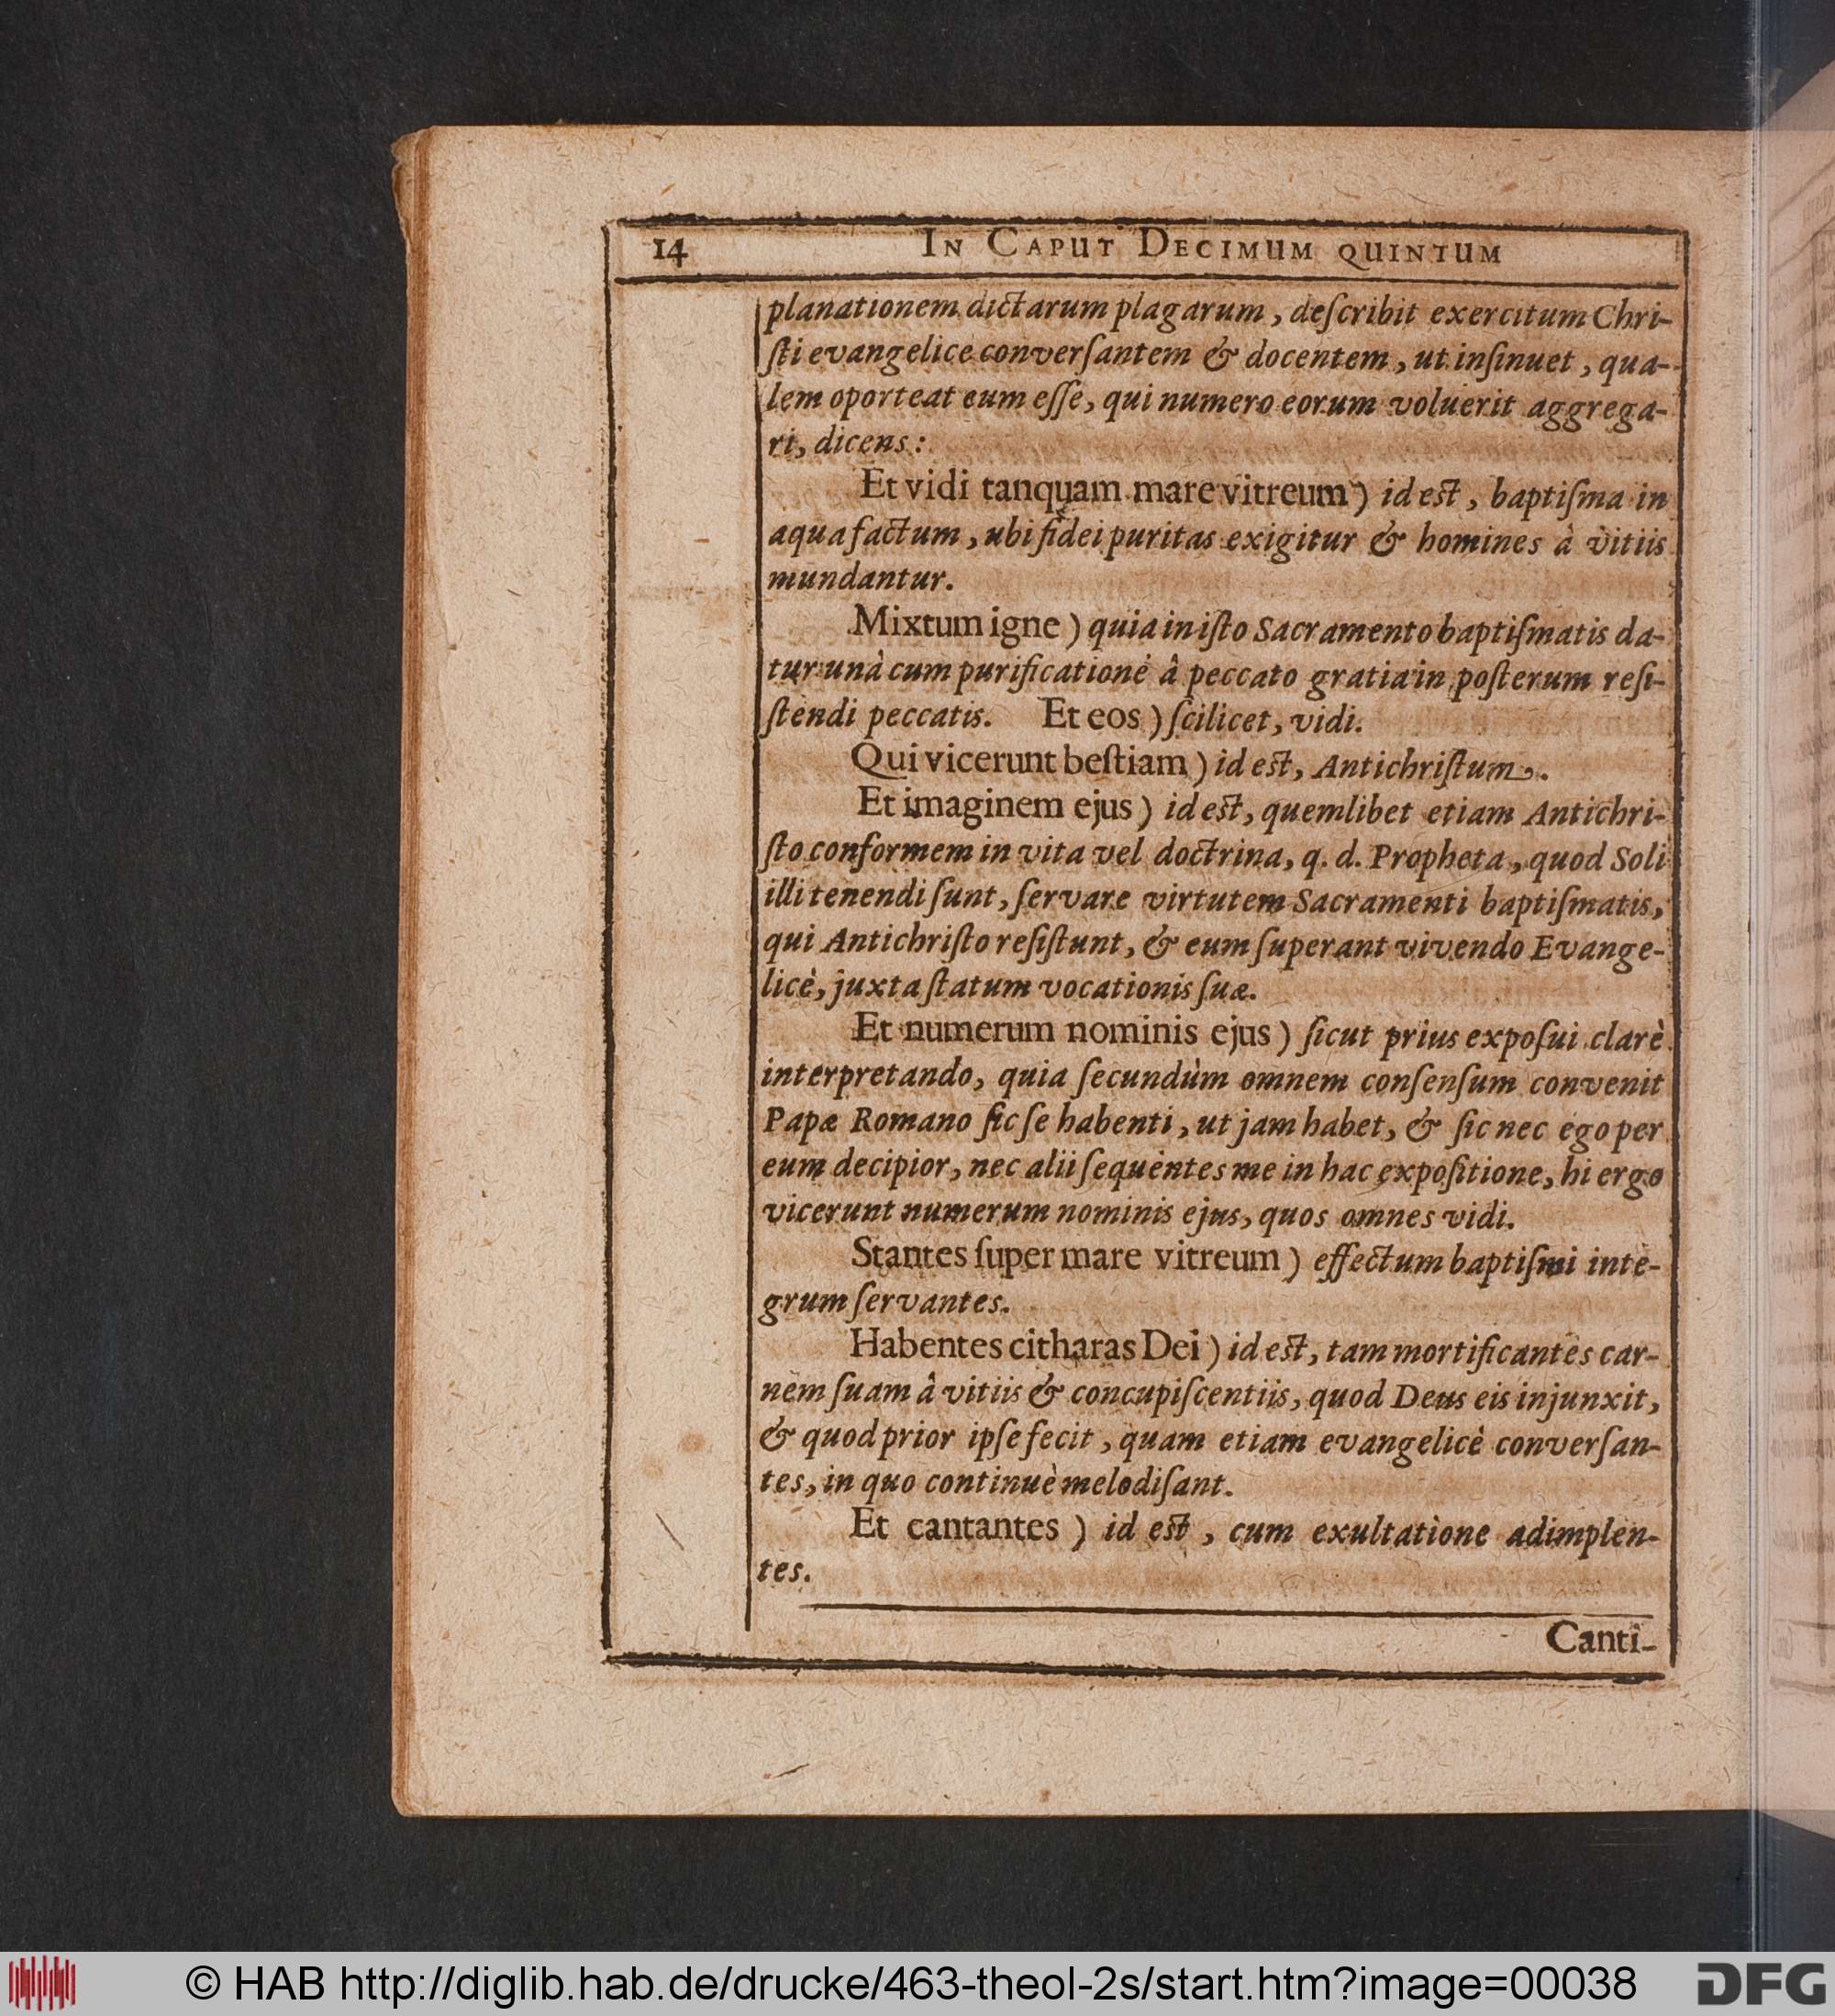 14 IN CAPUT DECIMUM QUINTUM
planationem dictarum plagarum, deſcribit exercitum Chri-
ſti evangelice converſantem & docentem, ut inſinuet, qua-
lem oporteat eum eſſe, qui numero eorum voluerit aggrega-
ri, dicens:
Et vidi tanquam mare vitreum) id est, baptiſma in
aqua factum, ubi fidei puritas exigitur & homines à vitiis
mundantur.
Mixtum igne) quia in iſto Sacramento baptiſmatis da-
tur unà cum purificatione â peccato gratia in poſterum reſi-
ſtendi peccatis. Et eos) ſcilicet, vidi.
Qui vicerunt beſtiam) id est, Antichriſtum.
Et imaginem ejus) id est, quemlibet etiam Antichri-
ſto conformem in vita vel doctrina, q. d. Propheta, quod Soli
illi tenendi ſunt, ſervare virtutem Sacramenti baptiſmatis,
qui Antichriſto reſiſtunt, & eum ſuperant vivendo Evange-
licè, juxta ſtatum vocationis ſuæ.
Et numerum nominis ejus) ſicut prius expoſui clarè
interpretando, quia ſecundùm omnem conſenſum convenit
Papæ Romano ſic ſe habenti, ut jam habet, & ſic nec ego per
eum decipior, nec alii ſequentes me in hac expoſitione, hi ergo
vicerunt numerum nominis ejus, quos omnes vidi.
Stantes ſuper mare vitreum) effectum baptiſmi inte-
grum ſervantes.
Habentes citharas Dei) id est, tam mortificantes car-
nem ſuam â vitiis & concupiſcentiis, quod Deus eis injunxit,
& quod prior ipſe fecit, quam etiam evangelicè converſan-
tes, in quo continuè melodiſant.
Et cantantes) id est, cum exultatione adimplen-
tes.
Canti-
© HAB http://diglib.hab.de/drucke/463-theol-2s/start.htm?image=00038
DFG